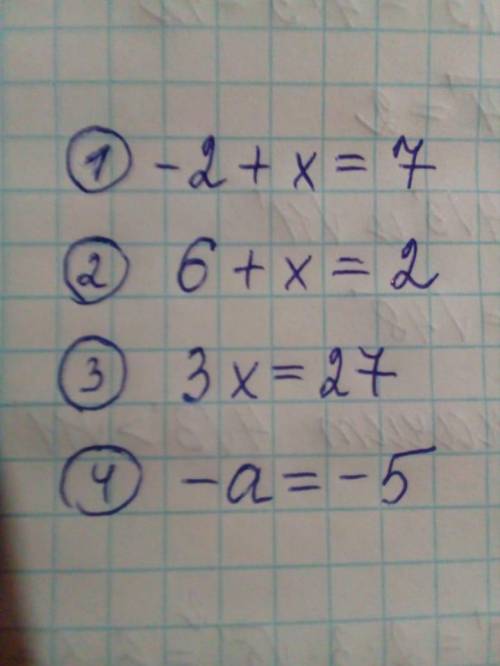 ① -2 + x = 7
② 6 + x = 2
③ 3x = 27
④ -a = -5